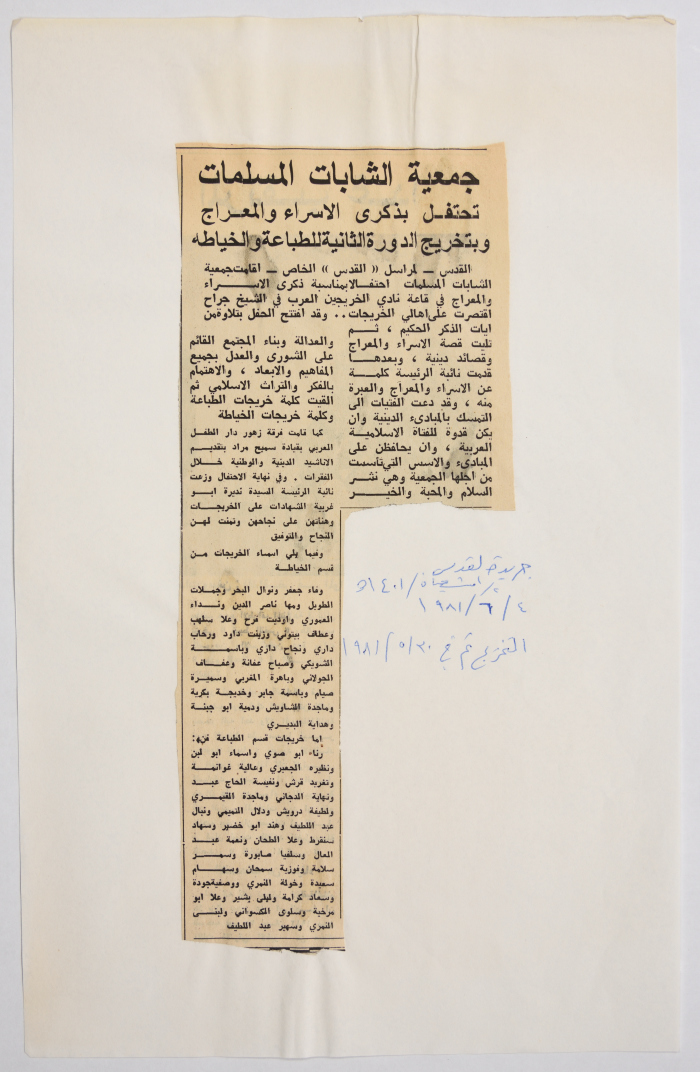 جمعية الشابات المسلمات
تحتفل بذكرى الاسراء والمعراج
وبتخريج الدورة الثانية للطباعة والخياطه
القدس – لمراسل « القدس » الخاص – اقامت جمعية
الشابات المسلمات احتفالا بمناسبة ذكرى الاسراء
والمعراج في قاعة نادي الخريجين العرب في الشيخ جراح
اقتصرت على اهالي الخريجات .. وقد افتتح الحفل بتلاوة من
ايات الذكر الحكيم ، ثم
تليت قصة الاسراء والمعراج
وقصائد دينية ، وبعدها
قدمت نائبة الرئيسة كلمة
عن الاسراء والمعراج والعبرة
منه ، وقد دعت الفتيات الى
التمسك بالمبادىء الدينية وان
يكن قدوة للفتاة الاسلامية
العربية ، وان يحافظن على
المبادىء والاسس التي تأسست
من اجلها الجمعية وهي نشر
السلام والمحبة والخير
والعدالة وبناء المجتمع القائم
على الشورى والعدل بجميع
المفاهيم والابعاد ، والاهتمام
بالفكر والتراث الاسلامي ثم
القيت كلمة خريجات الطباعة
وكلمة خريجات الخياطة
كما قامت فرقة زهور دار الطفل
العربي بقيادة سميح مراد بتقديم
الاناشيد الدينية والوطنية خلال
الفقرات . وفي نهاية الاحتفال وزعت
نائبة الرئيسة السيدة نديرة ابو
غربية الشهادات على الخريجات
وهنأتهن على نجاحهن وتمنت لهن
النجاح والتوفيق
وفيما يلي اسماء الخريجات من
قسم الخياطة
وفاء جعفر ونوال البخر وجملات
الطويل ومها ناصر الدين ونداء
العموري واوديت فرح وعلا سلهب
وعطاف بيتوني وزينت داود ورحاب
داري ونجاح داري وباسمة
الشويكي وصباح عفانة وعفاف
الجولاني وباهرة المغربي وسميرة
صيام وباسمة جابر وخديجة بكرية
وماجدة الشاويش ودمية ابو جبنة
وهداية البديري
اما خريجات قسم الطباعة فهن:
رناء ابو صوي واسماء ابو لبن
ونظيره الجعبري وعالية غوانمة
وتغريد قرش ونفيسة الحاج عبد
ونهاية الدجاني وماجدة القيمري
ولطيفة درويش ودلال التميمي ونبال
عبد اللطيف وهند ابو خضير وسهاد
سنقرط وعلا الطحان ونعمة عبد
العال وسلفيا صابورة وسمر
سلامة وفوزية سمحان وسهام
سعيدة وخولة النمري ووصفية جودة
وسعاد كرامة وليلى بشير وعلا ابو
مرخية وسلوى الكسواني ولبنى
النمري وسهير عبد اللطيف
جريدة القدس
٢/ شعبان/ ١٤٠١هـ
٤ / ٦ / ١٩٨١
التخريج تم في ٣٠ /٥/ ١٩٨١